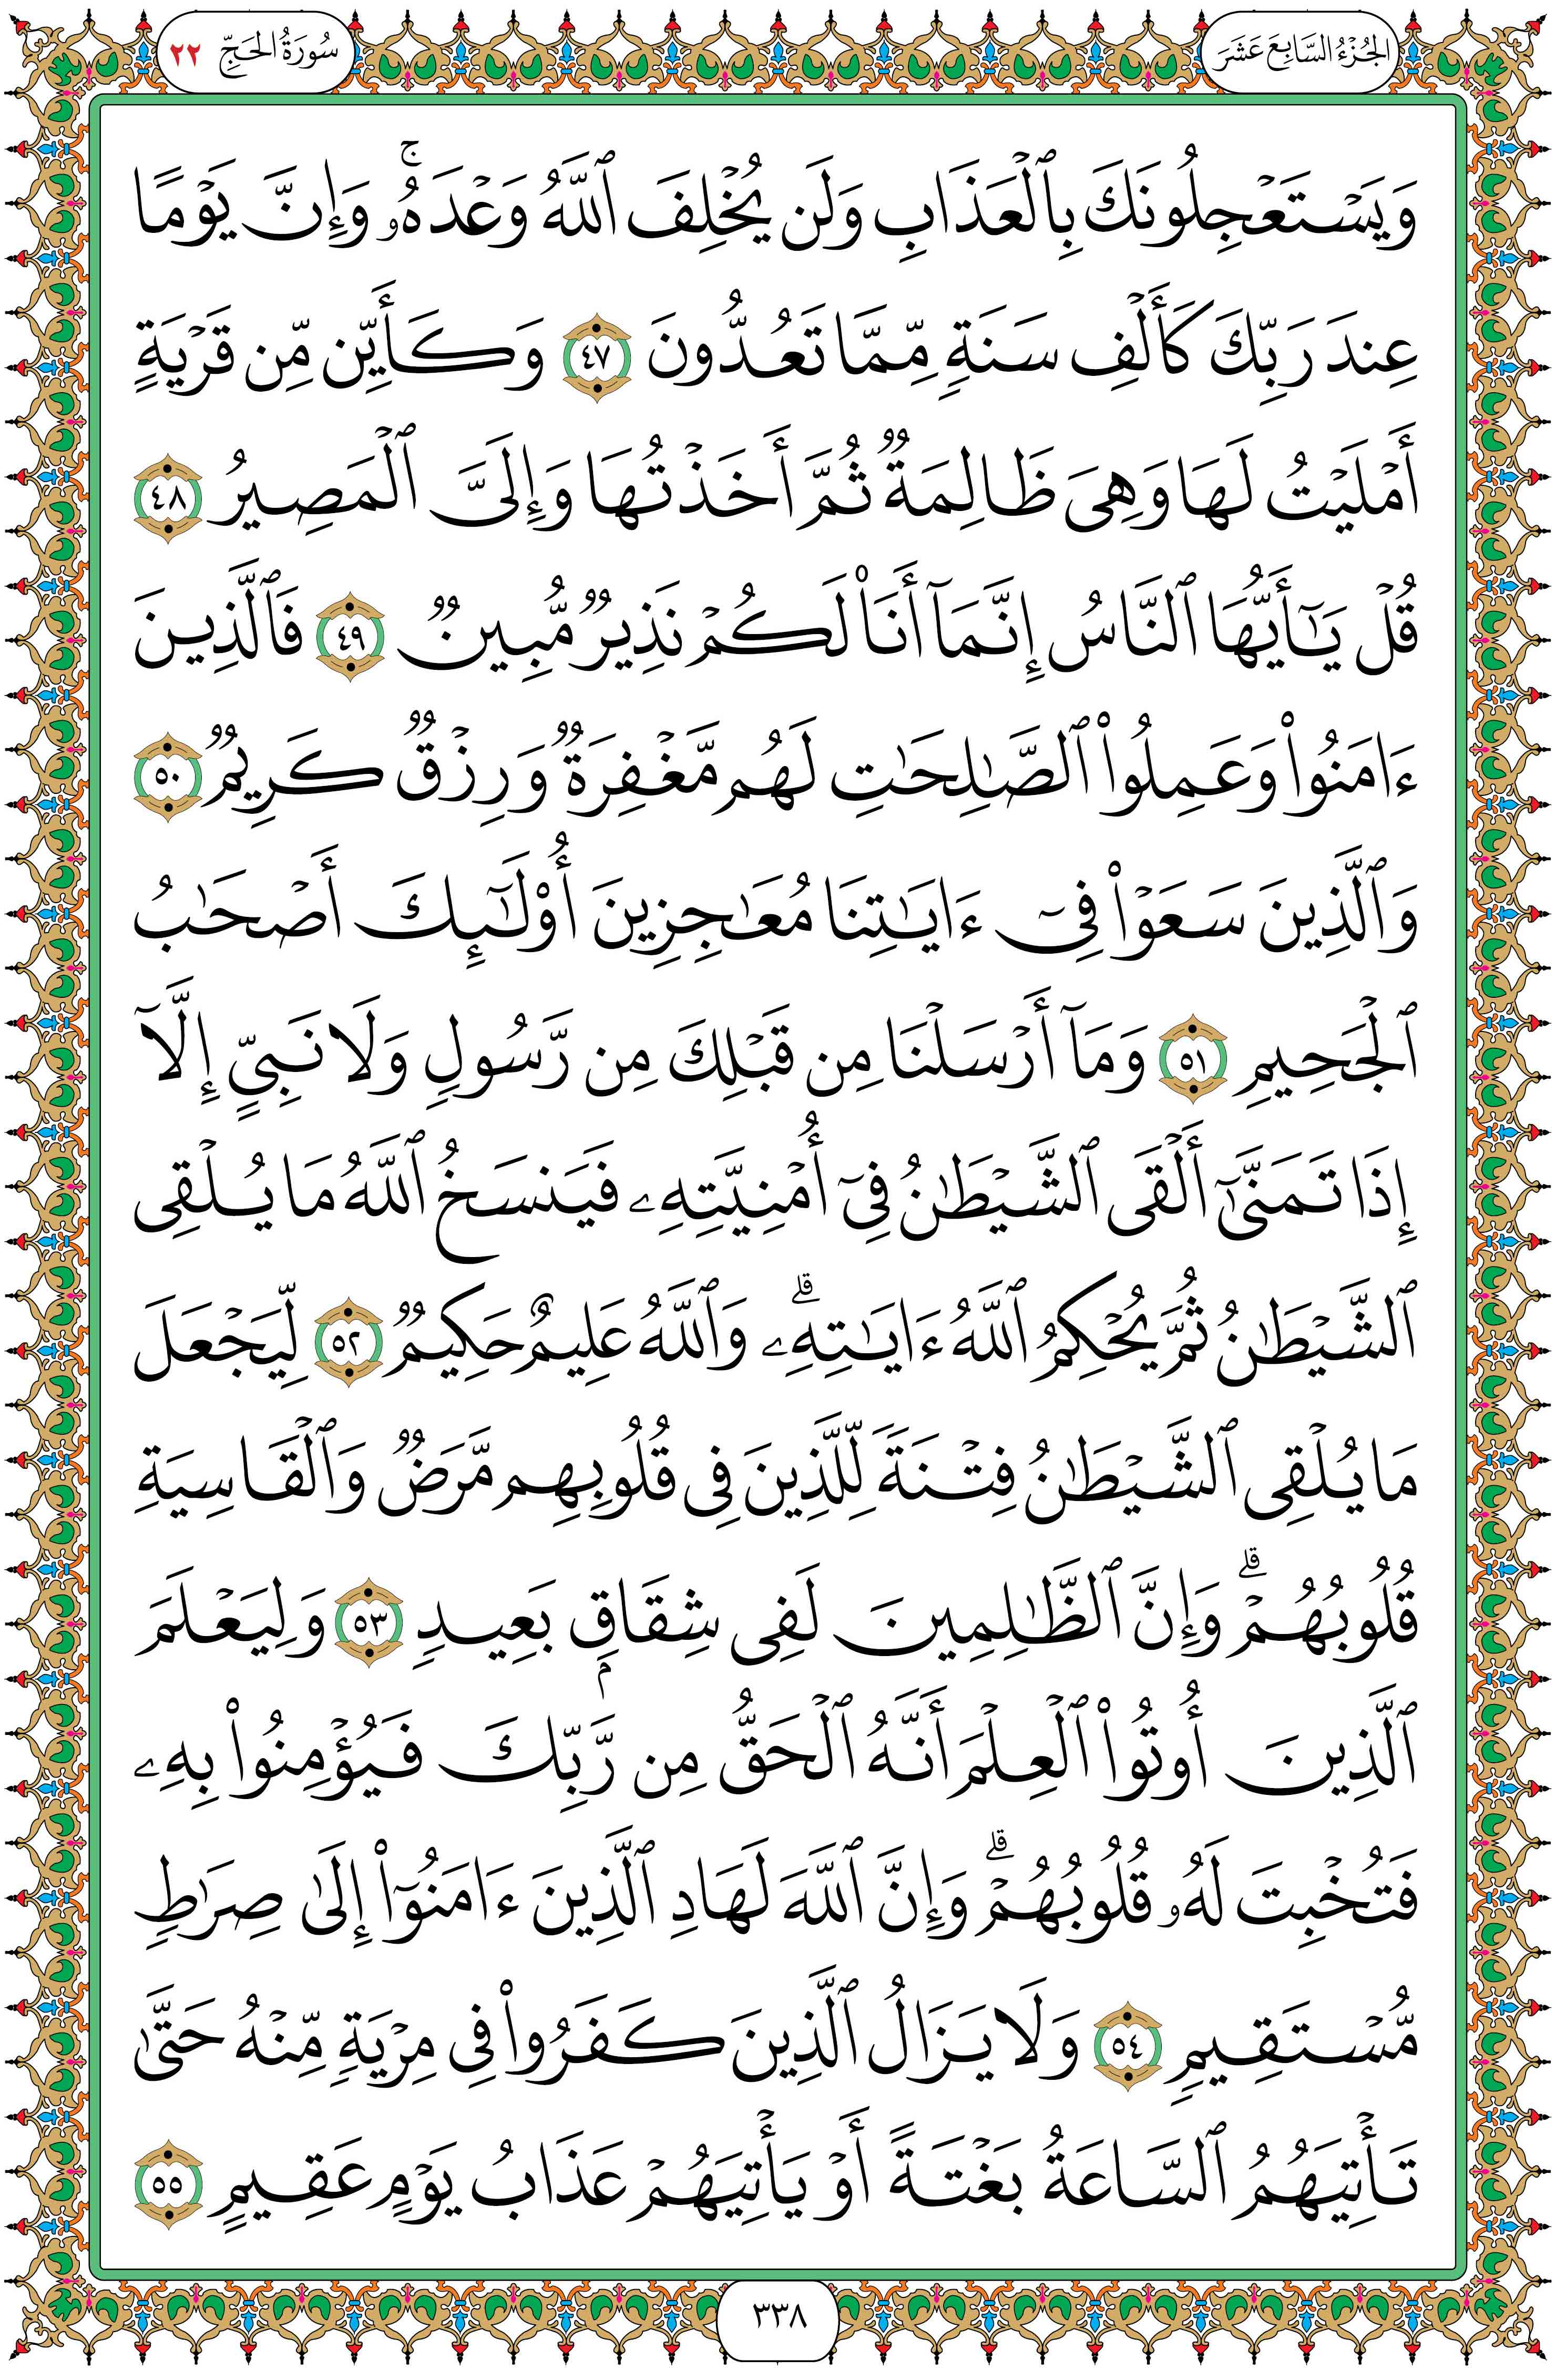 الجُزْءُ السَّابِعَ عَشَرَ
سُورَةُ الحَجِّ ٢٢
وَيَسْتَعْجِلُونَكَ بِٱلْعَذَابِ وَلَن يُخْلِفَ ٱللَّهُ وَعْدَهُۥۚ وَإِنَّ يَوْمًا
عِندَ رَبِّكَ كَأَلْفِ سَنَةٍ مِّمَّا تَعُدُّونَ ٤٧ وَكَأَيِّن مِّن قَرْيَةٍ
أَمْلَيْتُ لَهَا وَهِىَ ظَالِمَةٌ ثُمَّ أَخَذْتُهَا وَإِلَىَّ ٱلْمَصِيرُ ٤٨
قُلْ يَٰٓأَيُّهَا ٱلنَّاسُ إِنَّمَآ أَنَا۠ لَكُمْ نَذِيرٌ مُّبِينٌ ٤٩ فَٱلَّذِينَ
ءَامَنُوا۟ وَعَمِلُوا۟ ٱلصَّٰلِحَٰتِ لَهُم مَّغْفِرَةٌ وَرِزْقٌ كَرِيمٌ ٥٠
وَٱلَّذِينَ سَعَوْا۟ فِىٓ ءَايَٰتِنَا مُعَٰجِزِينَ أُو۟لَٰٓئِكَ أَصْحَٰبُ
ٱلْجَحِيمِ ٥١ وَمَآ أَرْسَلْنَا مِن قَبْلِكَ مِن رَّسُولٍ وَلَا نَبِىٍّ إِلَّآ
إِذَا تَمَنَّىٰٓ أَلْقَى ٱلشَّيْطَٰنُ فِىٓ أُمْنِيَّتِهِۦ فَيَنسَخُ ٱللَّهُ مَا يُلْقِى
ٱلشَّيْطَٰنُ ثُمَّ يُحْكِمُ ٱللَّهُ ءَايَٰتِهِۦۗ وَٱللَّهُ عَلِيمٌ حَكِيمٌ ٥٢ لِّيَجْعَلَ
مَا يُلْقِى ٱلشَّيْطَٰنُ فِتْنَةً لِّلَّذِينَ فِى قُلُوبِهِم مَّرَضٌ وَٱلْقَاسِيَةِ
قُلُوبُهُمْۗ وَإِنَّ ٱلظَّٰلِمِينَ لَفِى شِقَاقٍۭ بَعِيدٍ ٥٣ وَلِيَعْلَمَ
ٱلَّذِينَ أُوتُوا۟ ٱلْعِلْمَ أَنَّهُ ٱلْحَقُّ مِن رَّبِّكَ فَيُؤْمِنُوا۟ بِهِۦ
فَتُخْبِتَ لَهُۥ قُلُوبُهُمْۗ وَإِنَّ ٱللَّهَ لَهَادِ ٱلَّذِينَ ءَامَنُوٓا۟ إِلَىٰ صِرَٰطٍ
مُّسْتَقِيمٍ ٥٤ وَلَا يَزَالُ ٱلَّذِينَ كَفَرُوا۟ فِى مِرْيَةٍ مِّنْهُ حَتَّىٰ
تَأْتِيَهُمُ ٱلسَّاعَةُ بَغْتَةً أَوْ يَأْتِيَهُمْ عَذَابُ يَوْمٍ عَقِيمٍ ٥٥
٣٣٨